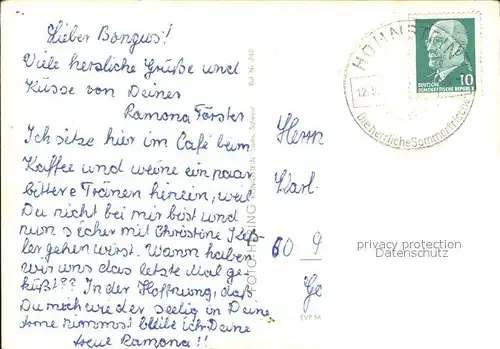 Lieber Bongus!
Viele herzliche Grüße und
Küsse von Deiner
Ramona Förster
Ich sitze hier im Café beim
Kaffee und weine ein paar
bittere Tränen herein, weil
Du nicht bei mir bist und
nun sicher mit Christine Keß-
ler gehen wirst. Wann haben
wir uns das letzte Mal ge-
küßt?? In der Hoffnung, daß
Du mich wieder seelig in Deine
Arme nimmst bleibe ich Deine
treue Ramona!!
Herrn
Karl
60 9
Ge
HOHNSTEIN
12.
Die herrliche Sommerfrische
10
DEUTSCHE
DEMOKRATISCHE REPUBLIK
privacy protection
Datenschutz